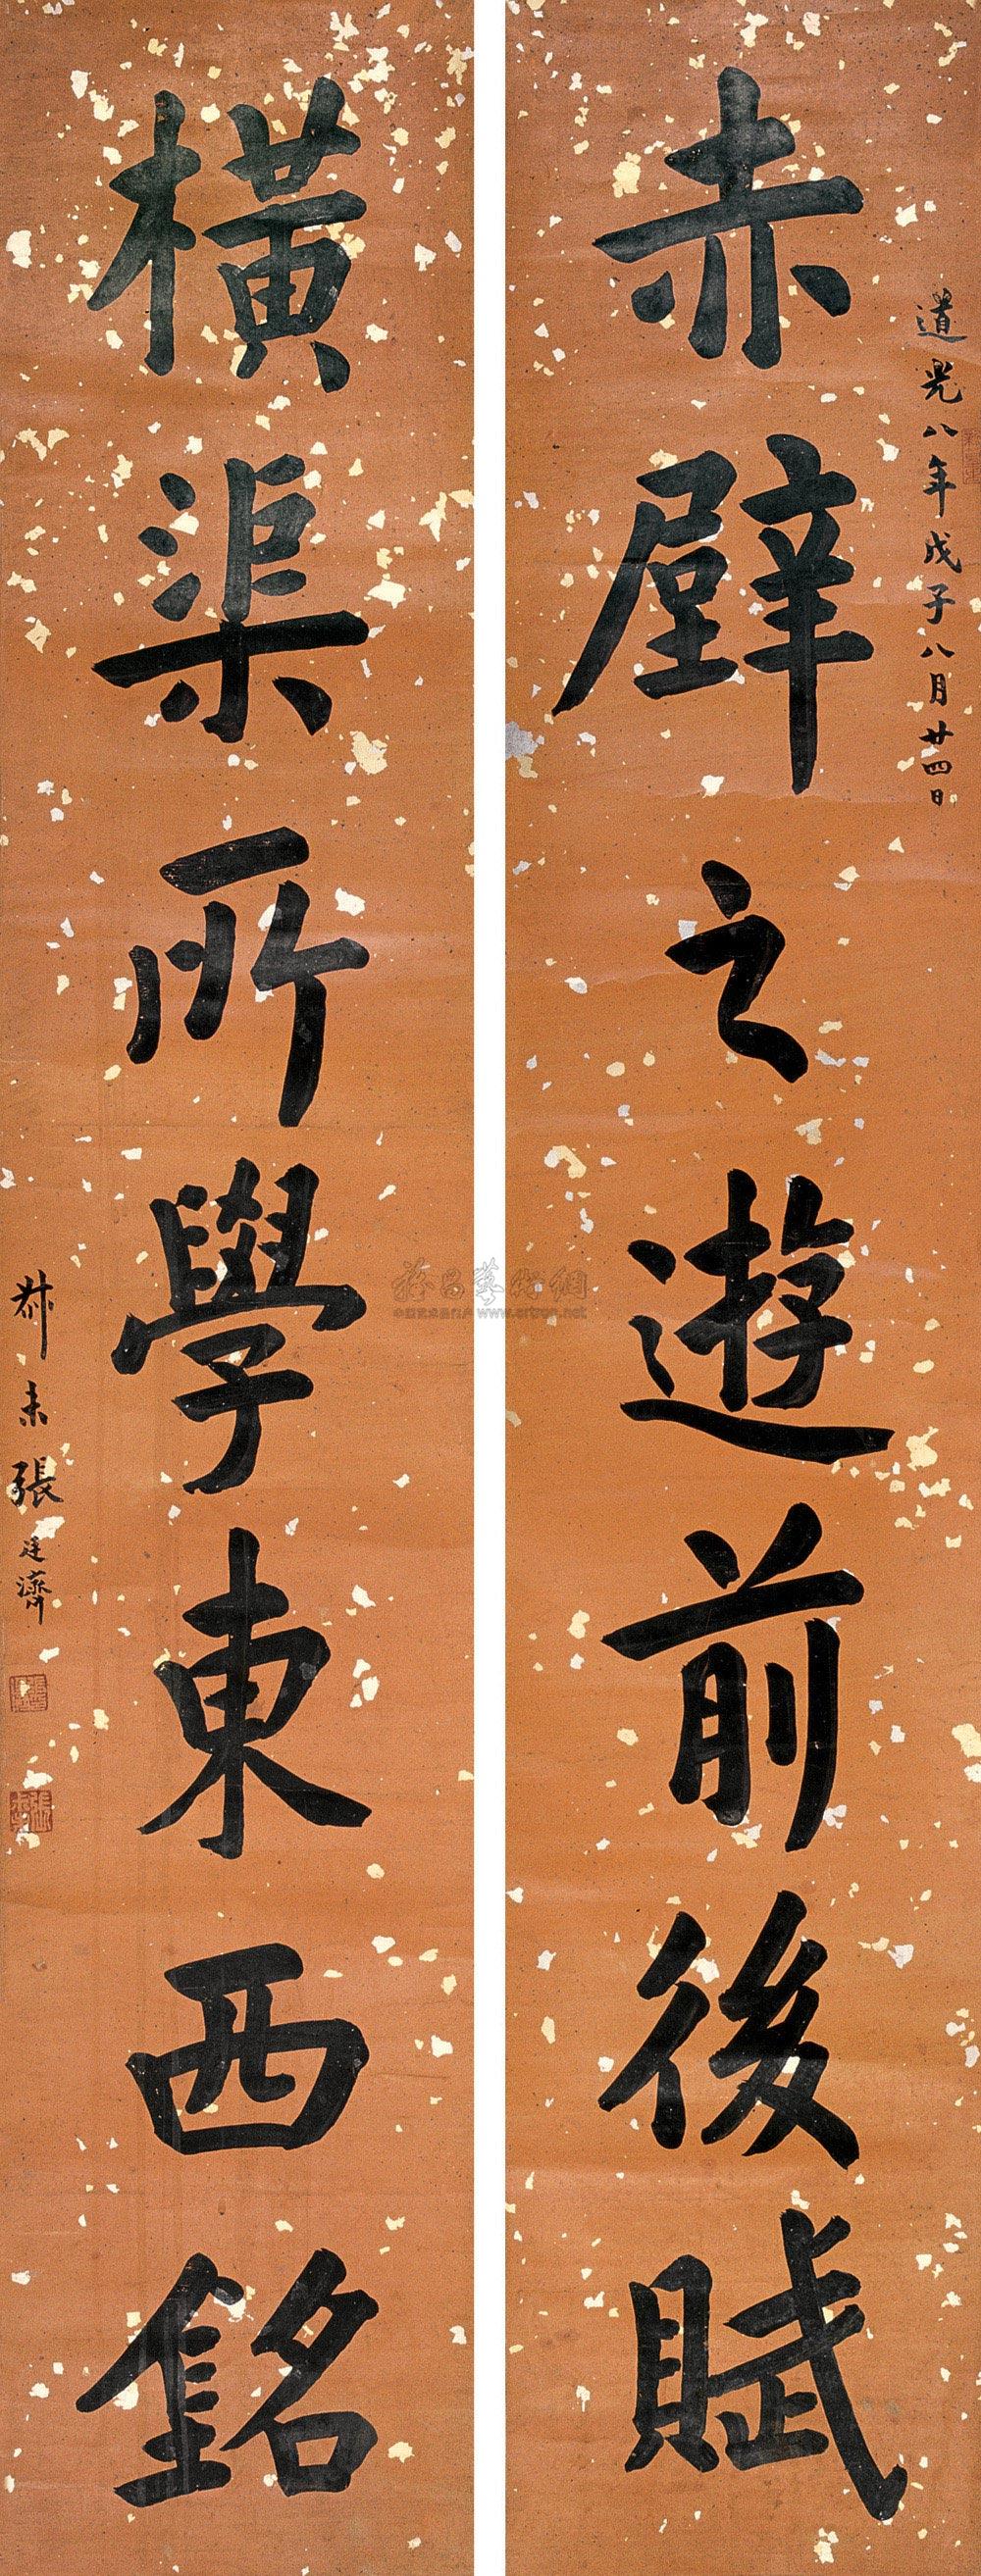 赤壁之遊前後賦
道光八年戊子八月廿四日
橫渠所學東西銘
叔未張廷濟
www.artron.net